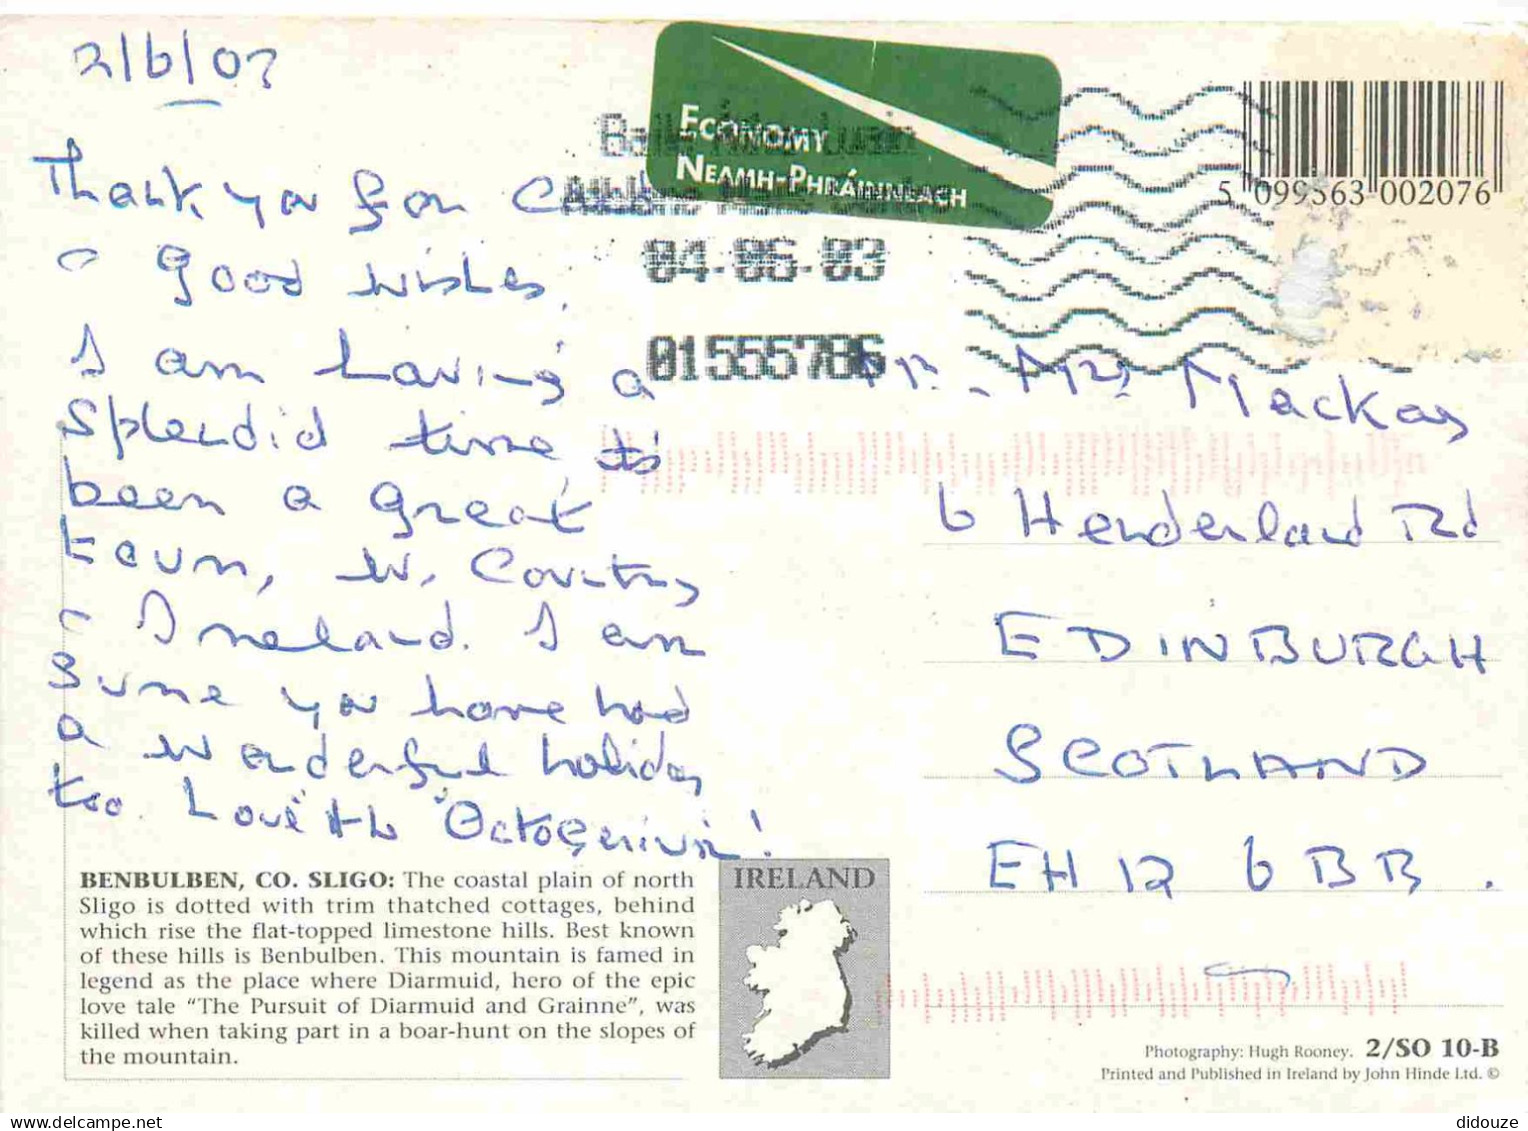 2/6/03
Thank you for
& good wishes.
I am having a
splendid time it's
been a great
tour, N. Country
& Ireland. I am
sure you have had
a wonderful holiday
too. Love
ECONOMY
NEAMH-PHRÁINNEACH
04-06-03
01555786
5 099363 002076
Mr. Mrs Mackay
6 Henderland Rd
EDINBURGH
SCOTLAND
EH12 6BB.
BENBULBEN, CO. SLIGO: The coastal plain of north
Sligo is dotted with trim thatched cottages, behind
which rise the flat-topped limestone hills. Best known
of these hills is Benbulben. This mountain is famed in
legend as the place where Diarmuid, hero of the epic
love tale “The Pursuit of Diarmuid and Grainne”, was
killed when taking part in a boar-hunt on the slopes of
the mountain.
IRELAND
Photography: Hugh Rooney. 2/SO 10-B
Printed and Published in Ireland by John Hinde Ltd. ©
didouze